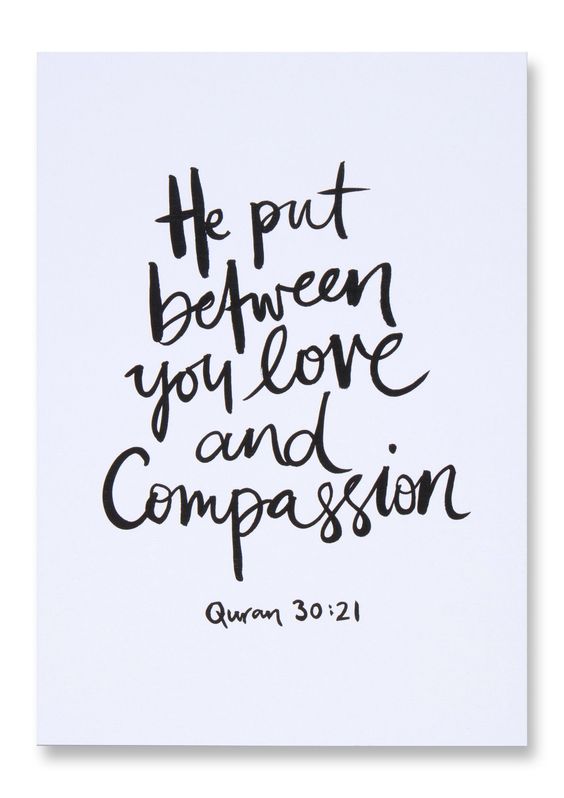 He put
between
you love
and
Compassion
Quran 30:21